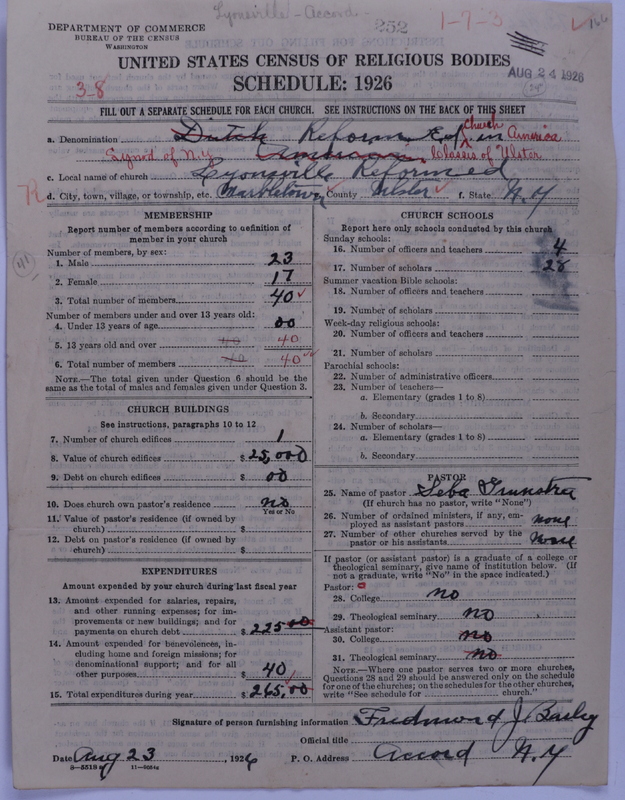 Lyonsville - Accord -
252
1-7-3
166
DEPARTMENT OF COMMERCE
BUREAU OF THE CENSUS
WASHINGTON
UNITED STATES CENSUS OF RELIGIOUS BODIES
AUG 24 1926
SCHEDULE: 1926
3-8
FILL OUT A SEPARATE SCHEDULE FOR EACH CHURCH. SEE INSTRUCTIONS ON THE BACK OF THIS SHEET
a. Denomination Dutch Reformed Church in America
Synod of N.Y. Classis of Ulster
c. Local name of church Lyonsville Reformed
R d. City, town, village, or township, etc. Marbletown County Ulster f. State N.Y
MEMBERSHIP
Report number of members according to definition of
member in your church
Number of members, by sex:
1. Male 23
2. Female 17
3. Total number of members 40
41
Number of members under and over 13 years old:
4. Under 13 years of age 00
5. 13 years old and over 40 40
6. Total number of members 40 40
NOTE.—The total given under Question 6 should be the
same as the total of males and females given under Question 3.
CHURCH BUILDINGS
See instructions, paragraphs 10 to 12
7. Number of church edifices 1
8. Value of church edifices $ 25,000
9. Debt on church edifices $ 00
10. Does church own pastor's residence no
Yes or No
11. Value of pastor's residence (if owned by
church) $
12. Debt on pastor's residence (if owned by
church) $
EXPENDITURES
Amount expended by your church during last fiscal year
13. Amount expended for salaries, repairs,
and other running expenses; for im-
provements or new buildings; and for
payments on church debt $ 225 00
14. Amount expended for benevolences, in-
cluding home and foreign missions; for
denominational support; and for all
other purposes $ 40
15. Total expenditures during year $ 265,00
CHURCH SCHOOLS
Report here only schools conducted by this church
Sunday schools:
16. Number of officers and teachers 4
17. Number of scholars 28
Summer vacation Bible schools:
18. Number of officers and teachers
19. Number of scholars
Week-day religious schools:
20. Number of officers and teachers
21. Number of scholars
Parochial schools:
22. Number of administrative officers
23. Number of teachers—
a. Elementary (grades 1 to 8)
b. Secondary
24. Number of scholars—
a. Elementary (grades 1 to 8)
b. Secondary
PASTOR
25. Name of pastor Seba
(If church has no pastor, write "None")
26. Number of ordained ministers, if any, em-
ployed as assistant pastors none
27. Number of other churches served by the
pastor or his assistants None
If pastor (or assistant pastor) is a graduate of a college or
theological seminary, give name of institution below. (If
not a graduate, write "No" in the space indicated.)
Pastor:
28. College no
29. Theological seminary no
Assistant pastor:
30. College no
31. Theological seminary no
NOTE.—Where one pastor serves two or more churches,
Questions 28 and 29 should be answered only on the schedule
for one of the churches; on the schedules for the other churches,
write "See schedule for church."
Signature of person furnishing information J.
Official title
Date Aug 23, 1926 P. O. Address Accord N.Y